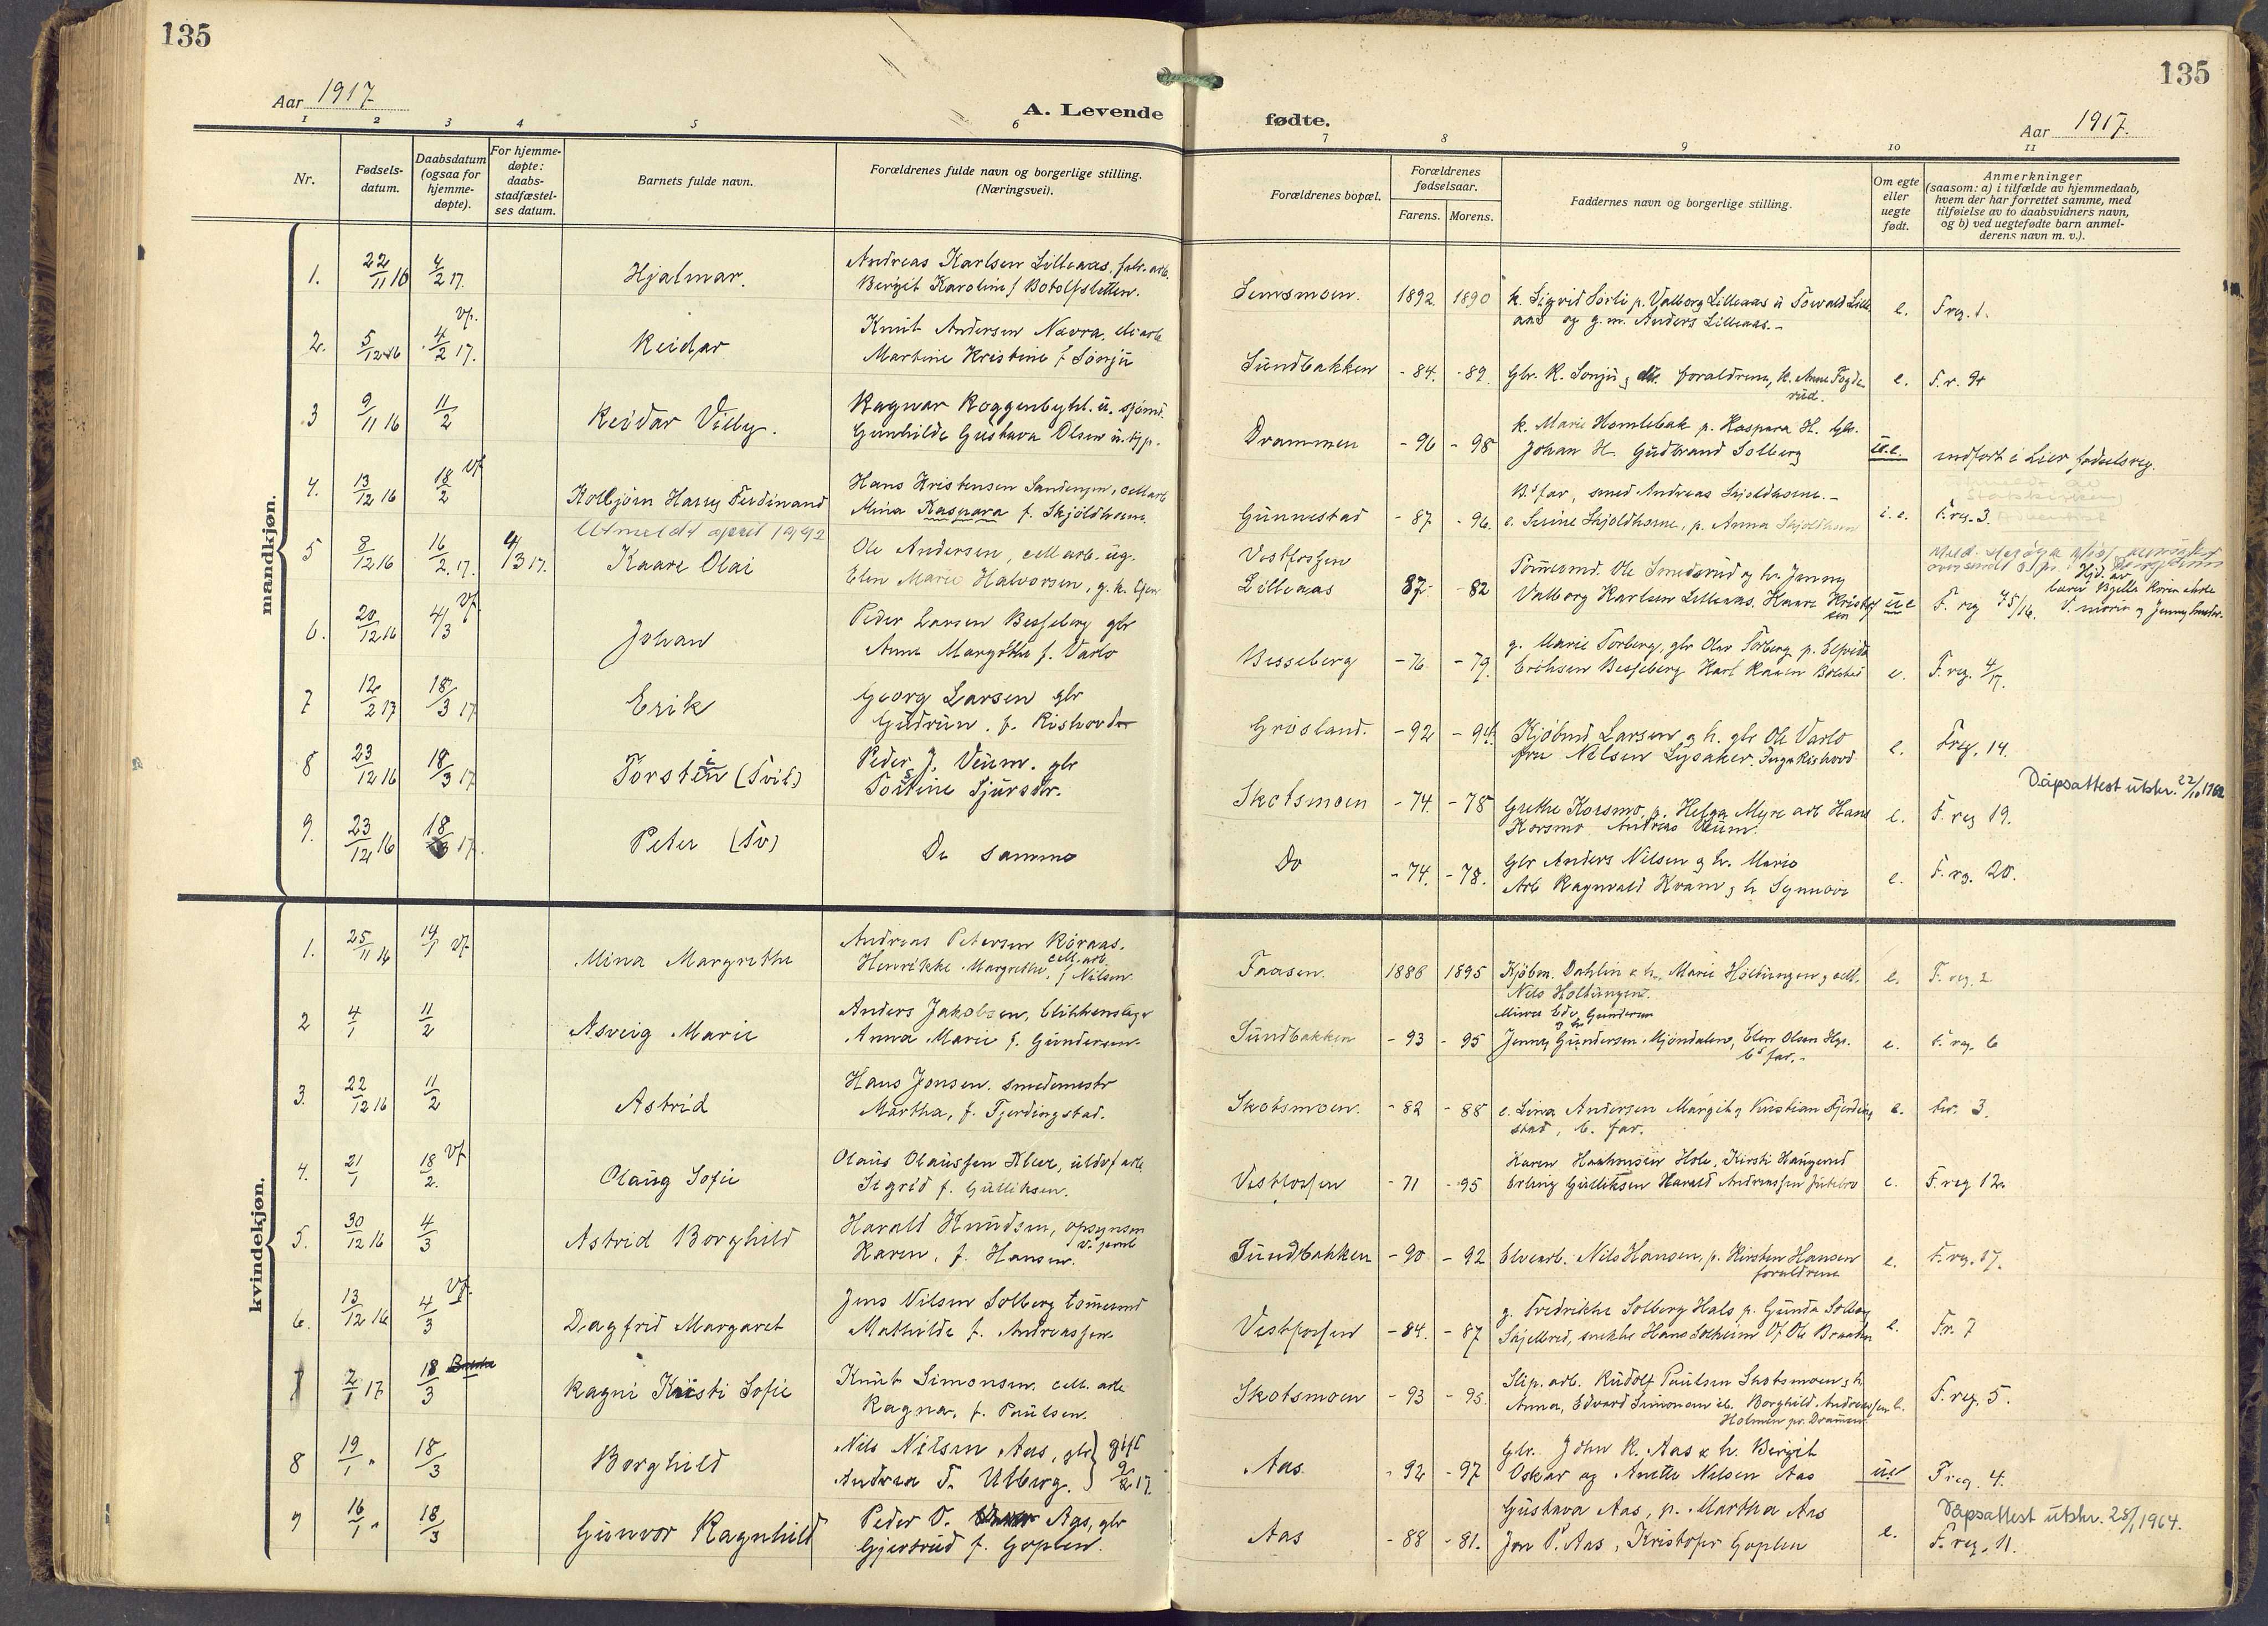 135
135
Aar 1917
A. Levende fødte.
Aar 1917.
1 2 3 4 5 6 7 8 9 10 11
Nr.
Fødsels-
datum.
Daabsdatum
(ogsaa for
hjemme-
døpte).
For hjemme-
døpte:
daabs-
stadfæstel-
ses datum.
Barnets fulde navn.
Forældrenes fulde navn og borgerlige stilling.
(Næringsvei).
Forældrenes bopæl.
Forældrenes
fødselsaar.
Farens. Morens.
Faddernes navn og borgerlige stilling.
Om egte
eller
uegte
født.
Anmerkninger
(saasom: a) i tilfælde av hjemmedaab,
hvem der har forrettet samme, med
tilføielse av to daabsvidners navn,
og b) ved uegtefødte barn anmel-
derens navn m. v.).
mandkjøn.
1. 22/11 16 4/2 17. Hjalmar. Andreas Karlsen Lilleaas, fabr. arb.
Bergit Karoline f Botolfsletten.
Semsmoen. 1892 1890 k. Sigrid Sørli p. Valborg Lilleaas u Torvald Lille
aas og g.m. Anders Lilleaas.- e. F reg. 1.
2. 5/12 16 4/2 17. Vf. Reidar Knut Andersen Nævra,
Martine Kristine f Sønju
Sundbakken - 84. - 89. Gbr. K. Sønju, forældrene, k. Anne Fogde
rud. e. F. r. 9
3 9/11 16 11/2 Reidar Villy. Ragnar Roggenbykl. u. sjømd.
Gunhilde Gustava Olsen u.
Drammen - 96 - 98 k. Marie Homlebæk p. Kaspara H. Gbr.
Johan H. Gudbrand Solberg u.e. indført i Lier fødselsreg.
4. 13/12 16 18/2 Vf Kolbjørn Harry Ferdinand Hans Kristensen Sandengen, cell arb
Mina Kaspara f. Skjöldhorne.
Gunnestad - 87 - 96. B.s far, smed Andreas Skjoldhorne.-
e. Serine Skjoldhorne, p. Anna Skjoldhorne e. F. reg. 3.
Utmeldt april 1992
5 8/12 16 16/2. 17. 4/3 17. Kaare Olai Ole Andersen, cell arb. ug.
Elen Marie Halvorsen, g. k.
Vestfossen
Lilleaas 87- - 82 Tømmermd. Ole Smedsrud og h. Jenny
Valborg Karlsen Lilleaas. Kaare Kristof
sen u e F. reg 75/16.
6. 20/12 16 4/3 Vf. Johan Peder Larsen Besseberg gbr
Anne Margrethe f. Varlo
Besseberg - 76 - 79. g. Marie Torberg, gbr Olav Torberg p. Elvida
Eriksen Besseberg Karl Kaasen e. F. reg. 4/17.
7 12/2 17 18/3 17 Erik Georg Larsen gbr
Gudrun. f. Rishovd
Grosland. - 92 - 94. Kjøbmd Larsen g h. gbr Ole Varlo
fru Nilsen Lysaker. Inga Rishovd e. F reg. 14.
8 23/12 16 18/3 17 Torstein (Tvil.) Peder J. Veum. gbr
Torine Sjursdr.
Skotsmoen - 74. - 78 Grethe Korsmo, p. Helga Myre arb Hans
Korsmo Andreas Veum. e. F. reg 19.
Dåpsattest utskr. 22/10 1962
9. 23/12 16 18/3 17. Peter (Tv) De samme
Do - 74. - 78. Gbr Anders Nilsen g h. Marie
Arb Ragnvald Kvam g h Synnøve e. F. rg. 20.
kvindekjøn.
1. 25/11 16 14/1 Vf. Mina Margrethe Andreas Petersen Røraas.
cell. arb.
Henrikke Margrethe, f Nilsen.
Faasen. 1886 1895 Kjøbm. Dahlin & h. Marie Holtungen, g cell.
Nils Holtungen. e. F. reg. 2
2 4/1 11/2 Asveig Marie Anders Jakobsen, blikkenslager
Anna Marie f. Gundersen.
Sundbakken - 93 - 95 Gundersen
g h
Jenny Gundersen Mjøndalen, Elen Olsen
b.s far.- e. F. reg. 6
3. 22/12 16 11/2 Astrid Hans Jonsen. smedmestr
Martha, f. Fjerdingstad.
Skotsmoen. - 82 - 88 e. Lina Andersen Margit g Kristian Fjerding
stad, b. far. e. Fr. 3.
4. 21/1 18/2. Vf Olaug Sofie Olaus Olaussen Kleer, uldvf arb
Sigrid f. Gulliksen.
Vestfossen - 71 - 95 Karen Haakonsen Hole, Kirsti Haugerud
Erling Gulliksen Harald Andreassen e. F. reg 12.
5. 30/12 16 4/3 Astrid Borghild Harald Knudsen, opsynsm
Karen, f. Hansen.
Sundbakken - 90 - 92 Elvearb. Nils Hansen, p. Kirsten Hansen
forældrene e. F. reg. 17.
6. 13/12 16 4/3 Vf. Dagfrid Margaret Jens Nilsen Solberg tømmermd
Mathilde f. Andreassen
Vestfossen - 84. - 87 g. Fredrikke Solberg Hals p. Gunda Solberg
Skjellerud, snekker Hans Solheim Ole Braaten e. Fr. 7
7 2/1 17 18/3 Ragni Kristi Sofie Knut Simonsen. cell. arb.
Ragna, f. Paulsen.
Skotsmoen - 93 - 95. Slip. arb. Rudolf Paulsen Skotsmoen g h
Anna, Edvard Simonsen Borghild Andreassen
Holmen pr. Drammen e. F. reg. 5.
8 19/1 " 18/3 Borghild Nils Nilsen Aas, gbr } gift
Andrea T. Ulberg. } 9/2 17.
Aas. - 92 - 97 Gbr. John R. Aas & h. Bergit
Oskar og Anette Nilsen Aas ue F reg. 4.
9 16/1 " 18/3 Gunvor Ragnhild Peder O. Aas, gbr
Gjertrud f. Goplen.
Aas - 88 - 81. Gustava Aas, p. Martha Aas
Jon P. Aas, Kristofer Goplen e. F. reg. 11.
Dåpsattest utskr. 28/1 1964.